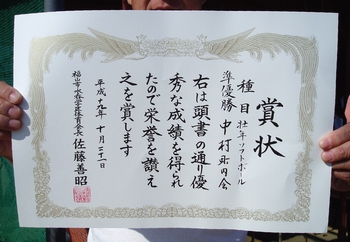 賞状
種目 壮年ソフトボール
準優勝 中村町内会
右は頭書の通り優
秀な成績を得られ
たので栄誉を讃え
之を賞します
平成十九年十月二十一日
福山市水呑学区体育会会長 佐藤善昭